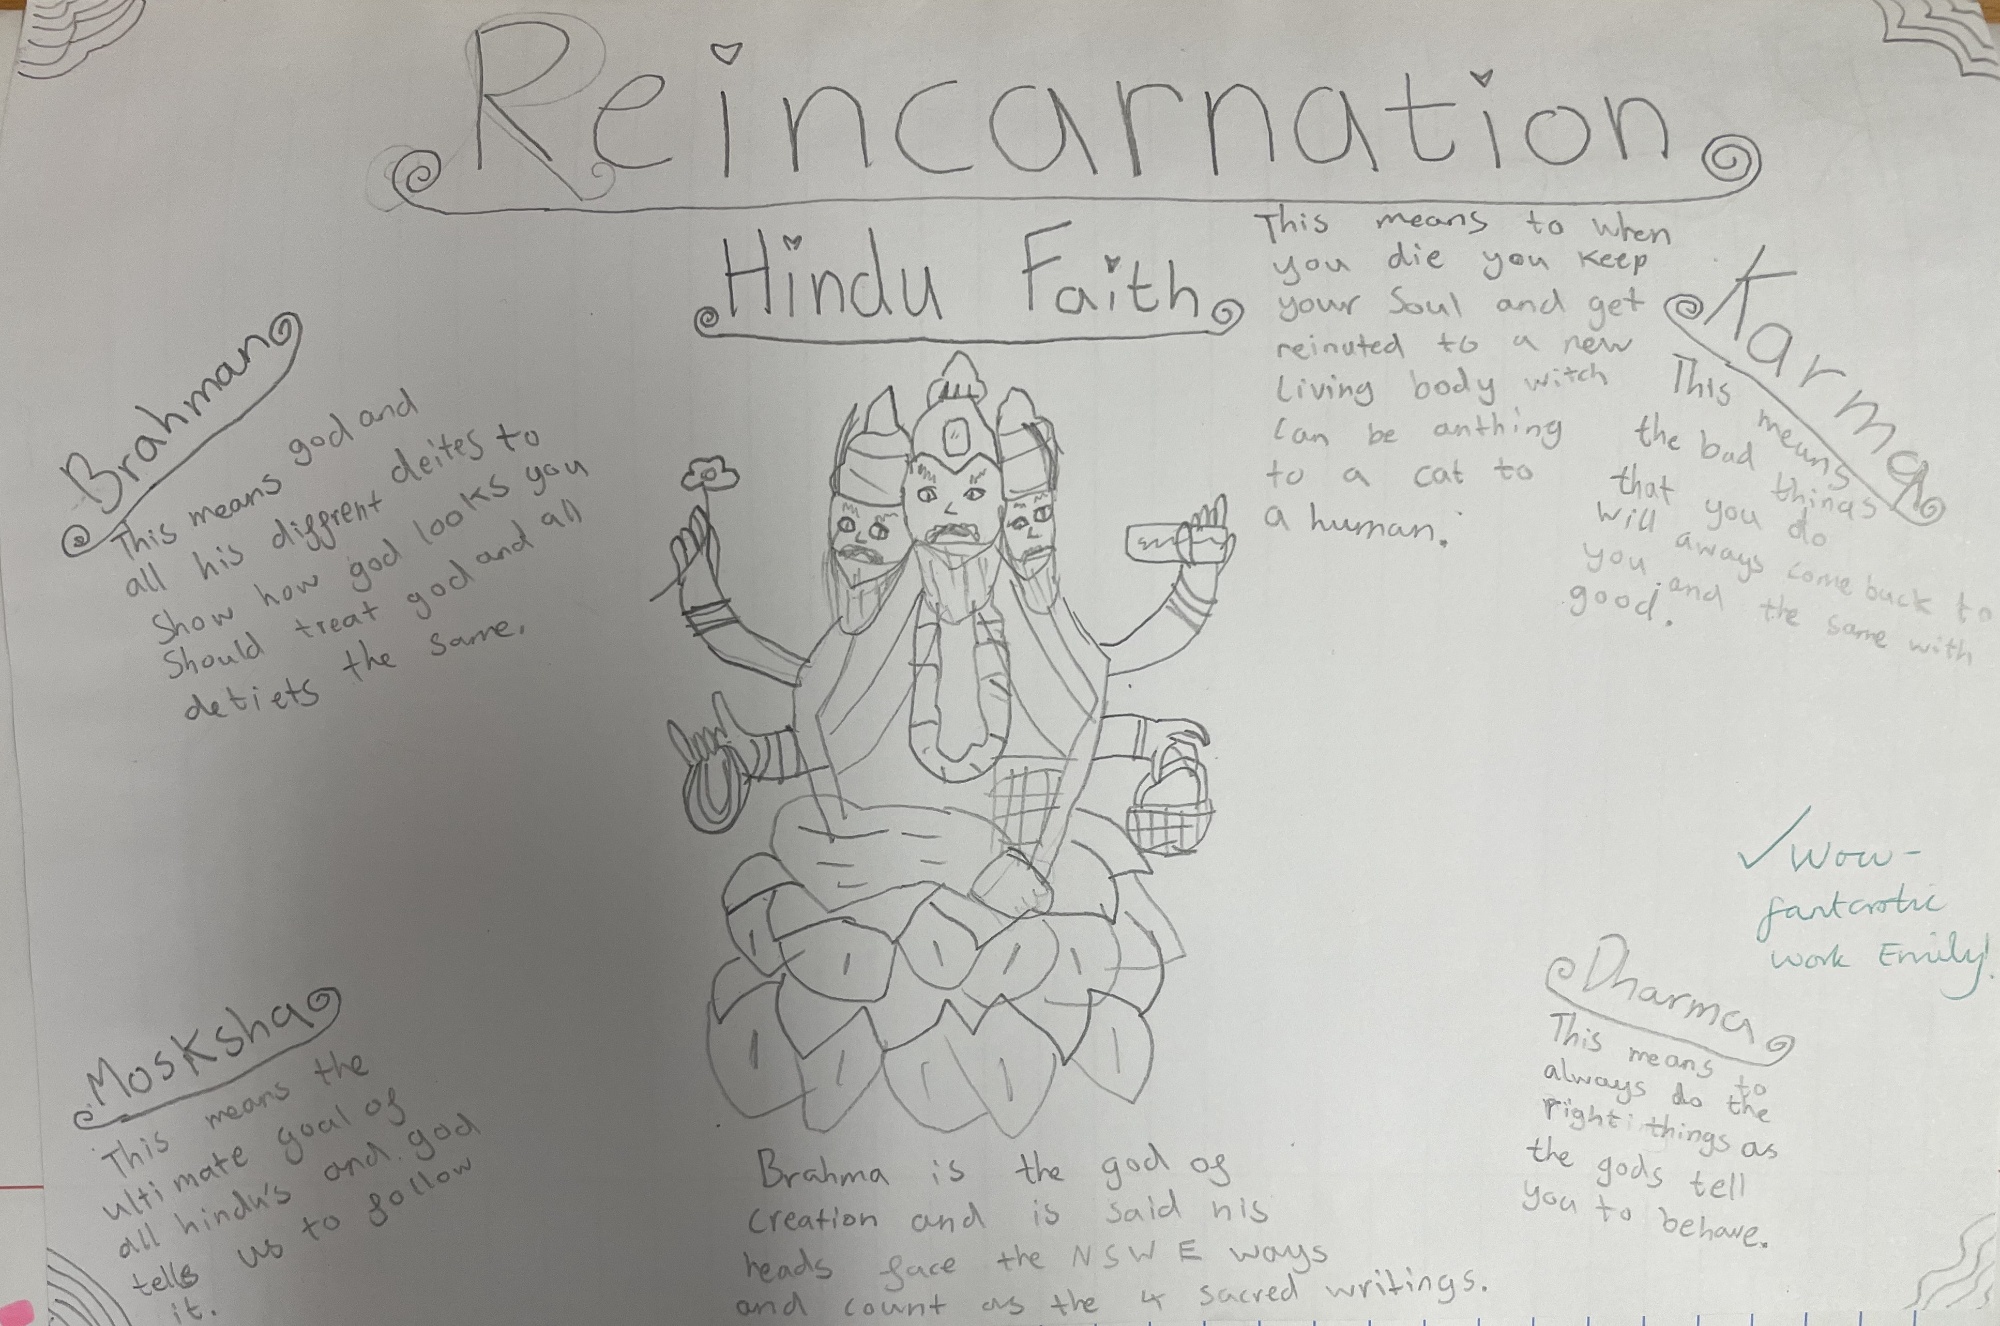 Reincarnation
Hindu Faith
This means to when
you die you keep
your Soul and get
reinuted to a new
Living body witch
can be anthing
to a cat to
a human.
Karma
This means
the bad things
that you do
will aways come back to
you and the same with
good.
Brahman
This means god and
all his diffrent deites to
Show how god looks you
Should treat god and all
detiets the same.
Mosksha
This means the
ultimate goal of
all hindu's and god
tells us to follow
it.
Brahma is the god of
creation and is said his
heads face the N S W E ways
and count as the 4 sacred writings.
✓ Wow-
fantastic
work Emily!
Dharma
This means to
always do the
right things as
the gods tell
you to behave.